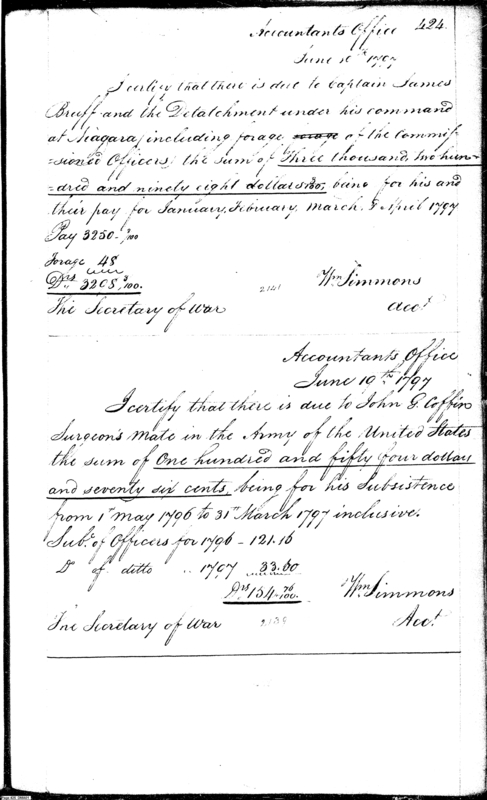 Accountants Office 424.
June 10th 1797
I certify that there is due to Captain James
Bruff and the Detatchment under his command
at Niagara, including forage of the Commis-
=sioned Officers; the sum of Three thousand, two hun-
=dred and ninety eight dollars 3/100, being for his and
their pay for January, February, March & April 1797
Pay 3250. 3/100
Forage 48
Drs 3298. 3/100.
2141 Wm Simmons
The Secretary of War Acct.
Accountants Office
June 10th 1797
I certify that there is due to John G. Coffin
Surgeon's Mate in the Army of the United States
the sum of One hundred and fifty four dollars
and seventy six cents, being for his Subsistence
from 1st May 1796 to 31st March 1797 inclusive.
Subs. of Officers for 1796 - 121.16
Do of ditto .. 1797 33.60
Drs 154. 76/100. Wm Simmons
The Secretary of War 2138 Acct.